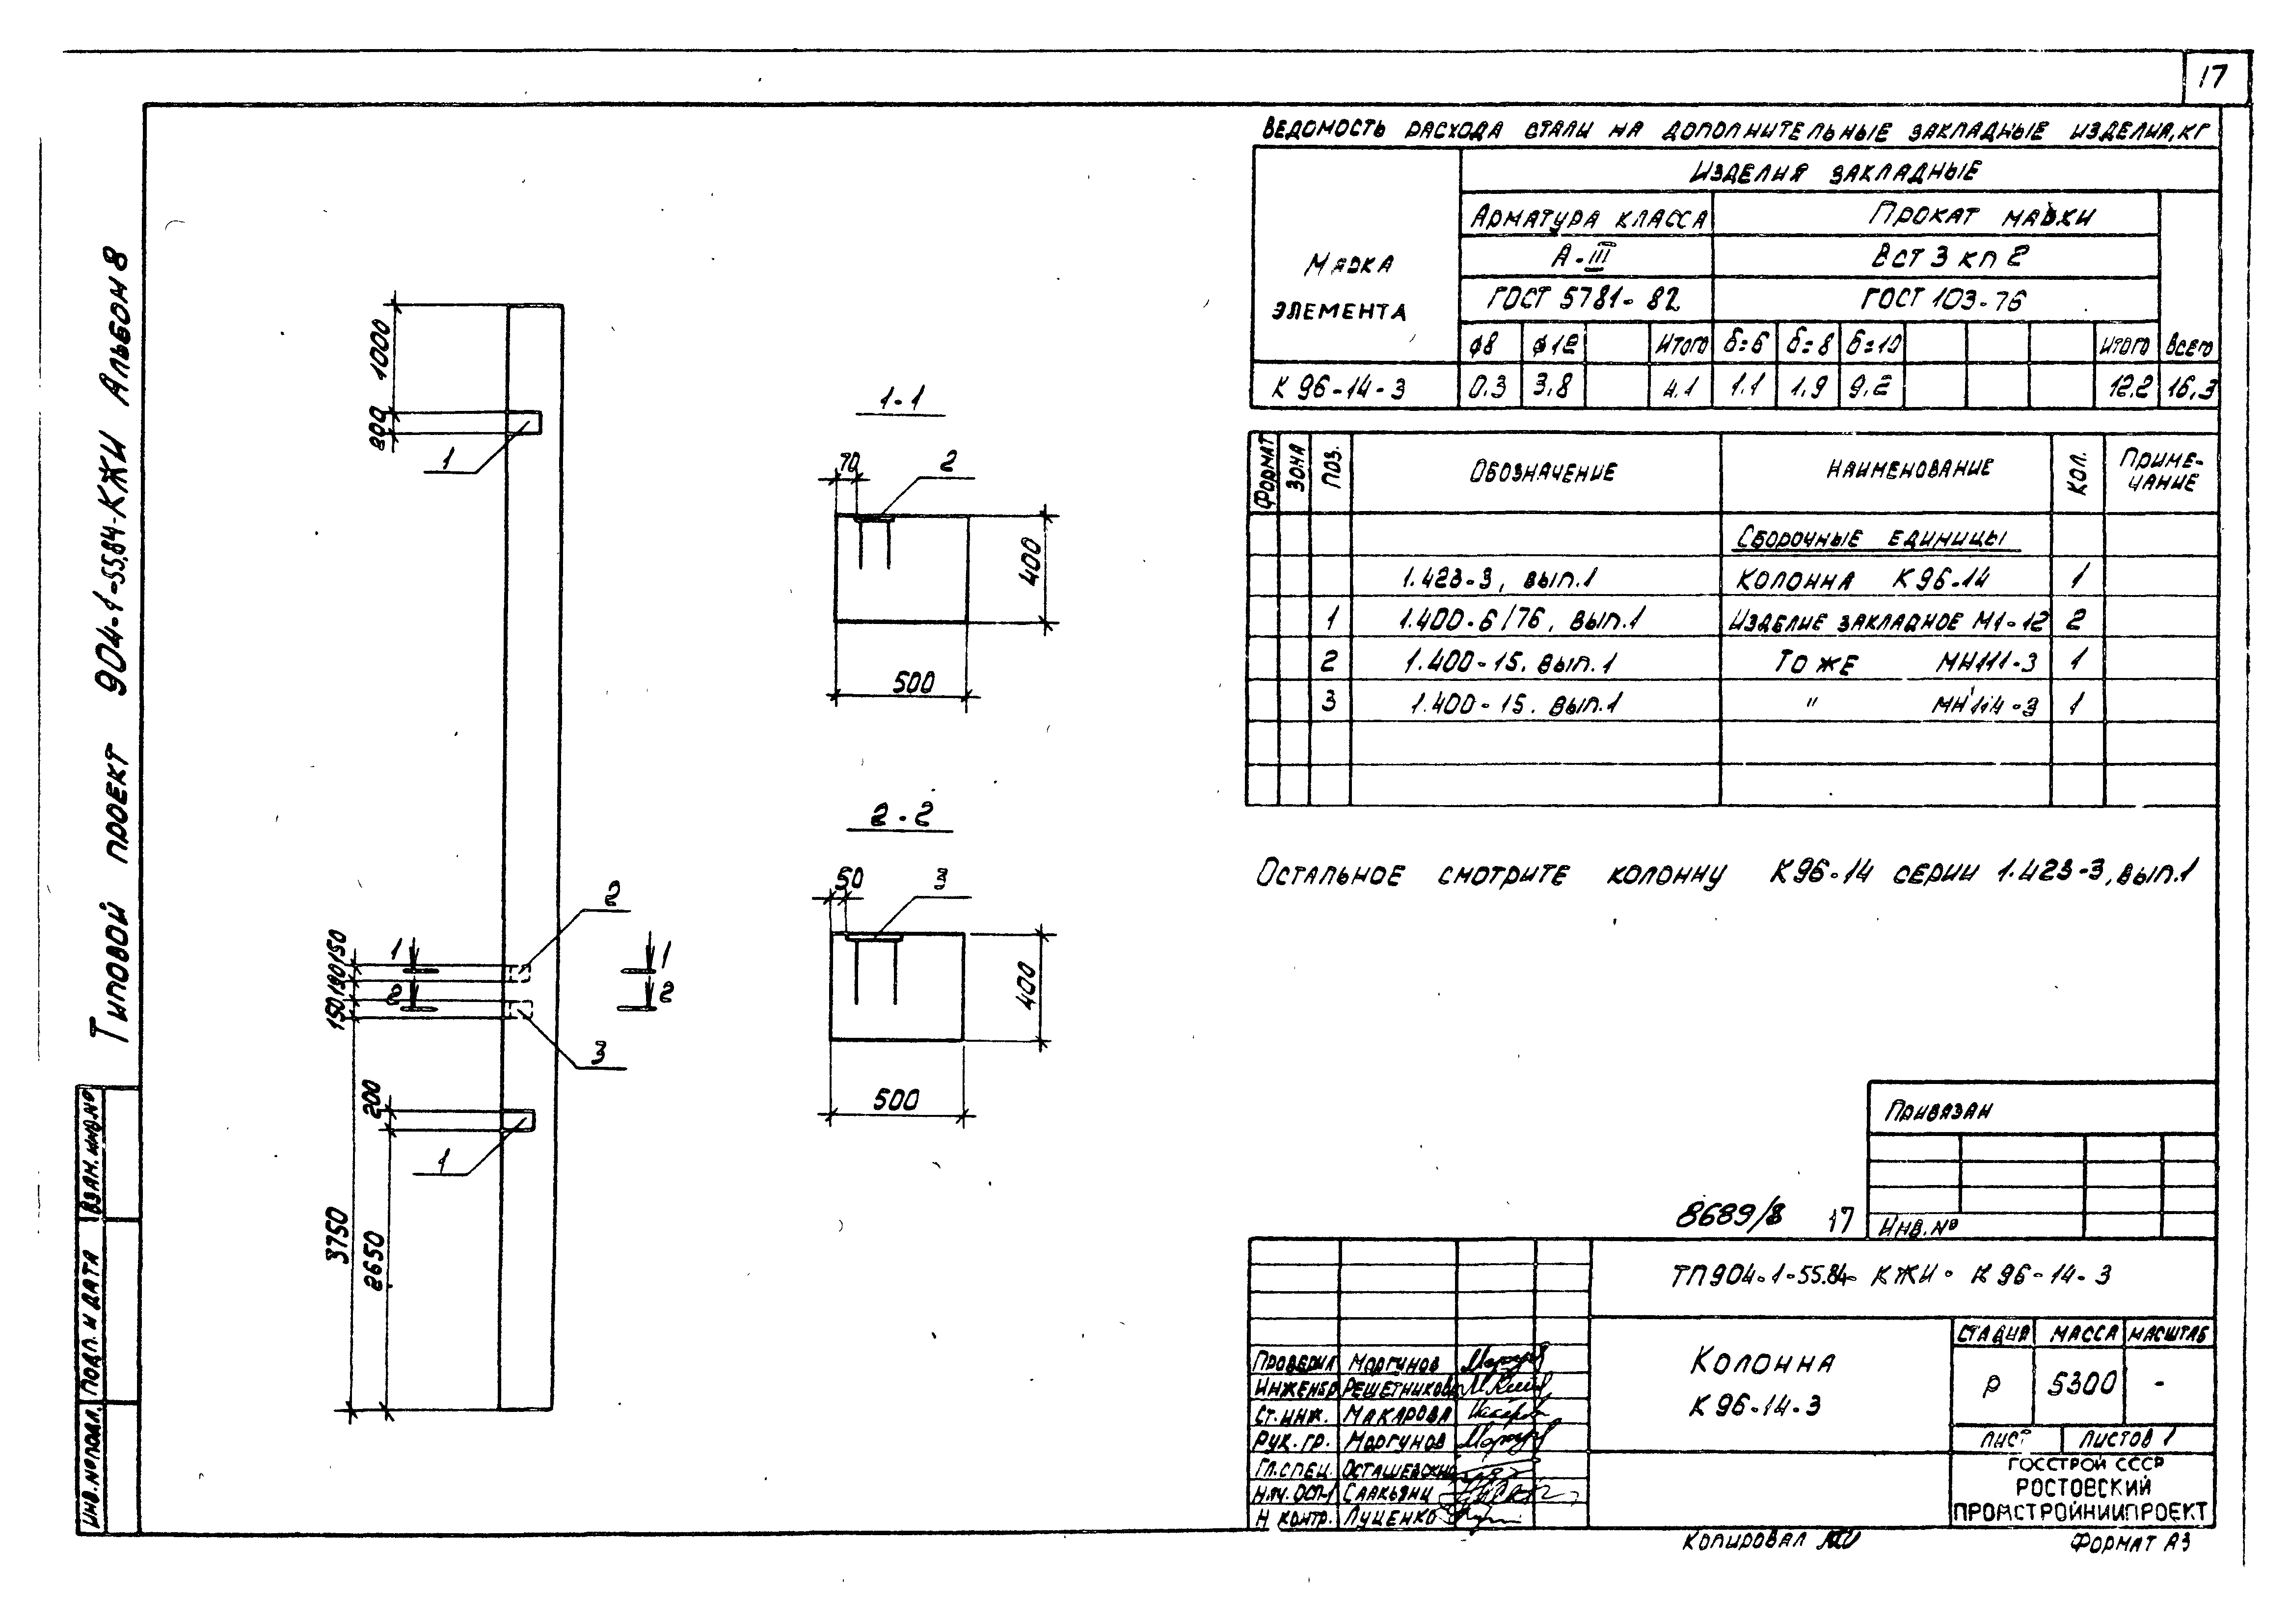 17
Типовой проект 904-1-55.84-КЖИ Альбом 8
1000
200
1
2
150
190
150
1 1
2 2
3
200
1
3750
2650
1-1
70 2
400
500
2-2
50 3
400
500
Ведомость расхода стали на дополнительные закладные изделия, кг
Марка элемента
Изделия закладные
Арматура класса Прокат марки
А-III ВСт3кп2
ГОСТ 5781-82 ГОСТ 103-76
ф8 ф12 Итого δ=6 δ=8 δ=10 Итого Всего
К96-14-3 0,3 3,8 4,1 1.1 1,9 9,2 12,2 16,3
Формат Зона Поз. Обозначение Наименование Кол. Приме-
чание
Сборочные единицы
1.423-3, вып.1 Колонна К96-14 1
1 1.400-6/76, вып.1 Изделие закладное М1-12 2
2 1.400-15. вып.1 То же МН111-3 1
3 1.400-15. вып.1 " МН114-3 1
Остальное смотрите колонну К96-14 серии 1.423-3, вып.1
Привязан
Инв.№
8689/8 17
ТП904-1-55.84-КЖИ-К96-14-3
Проверил Моргунов
Инженер Решетникова
Ст.инж. Макарова
Рук.гр. Моргунов
Гл.спец.
Нач.ОСП-1 Саакьянц
Н контр. Луценко
Колонна
К96-14-3
Стадия Масса Масштаб
Р 5300 -
Лист Листов 1
ГОССТРОЙ СССР
РОСТОВСКИЙ
ПРОМСТРОЙНИИПРОЕКТ
Копировал
Формат А3
Взам.инв.№
Подп. и дата
Инв.№подл.